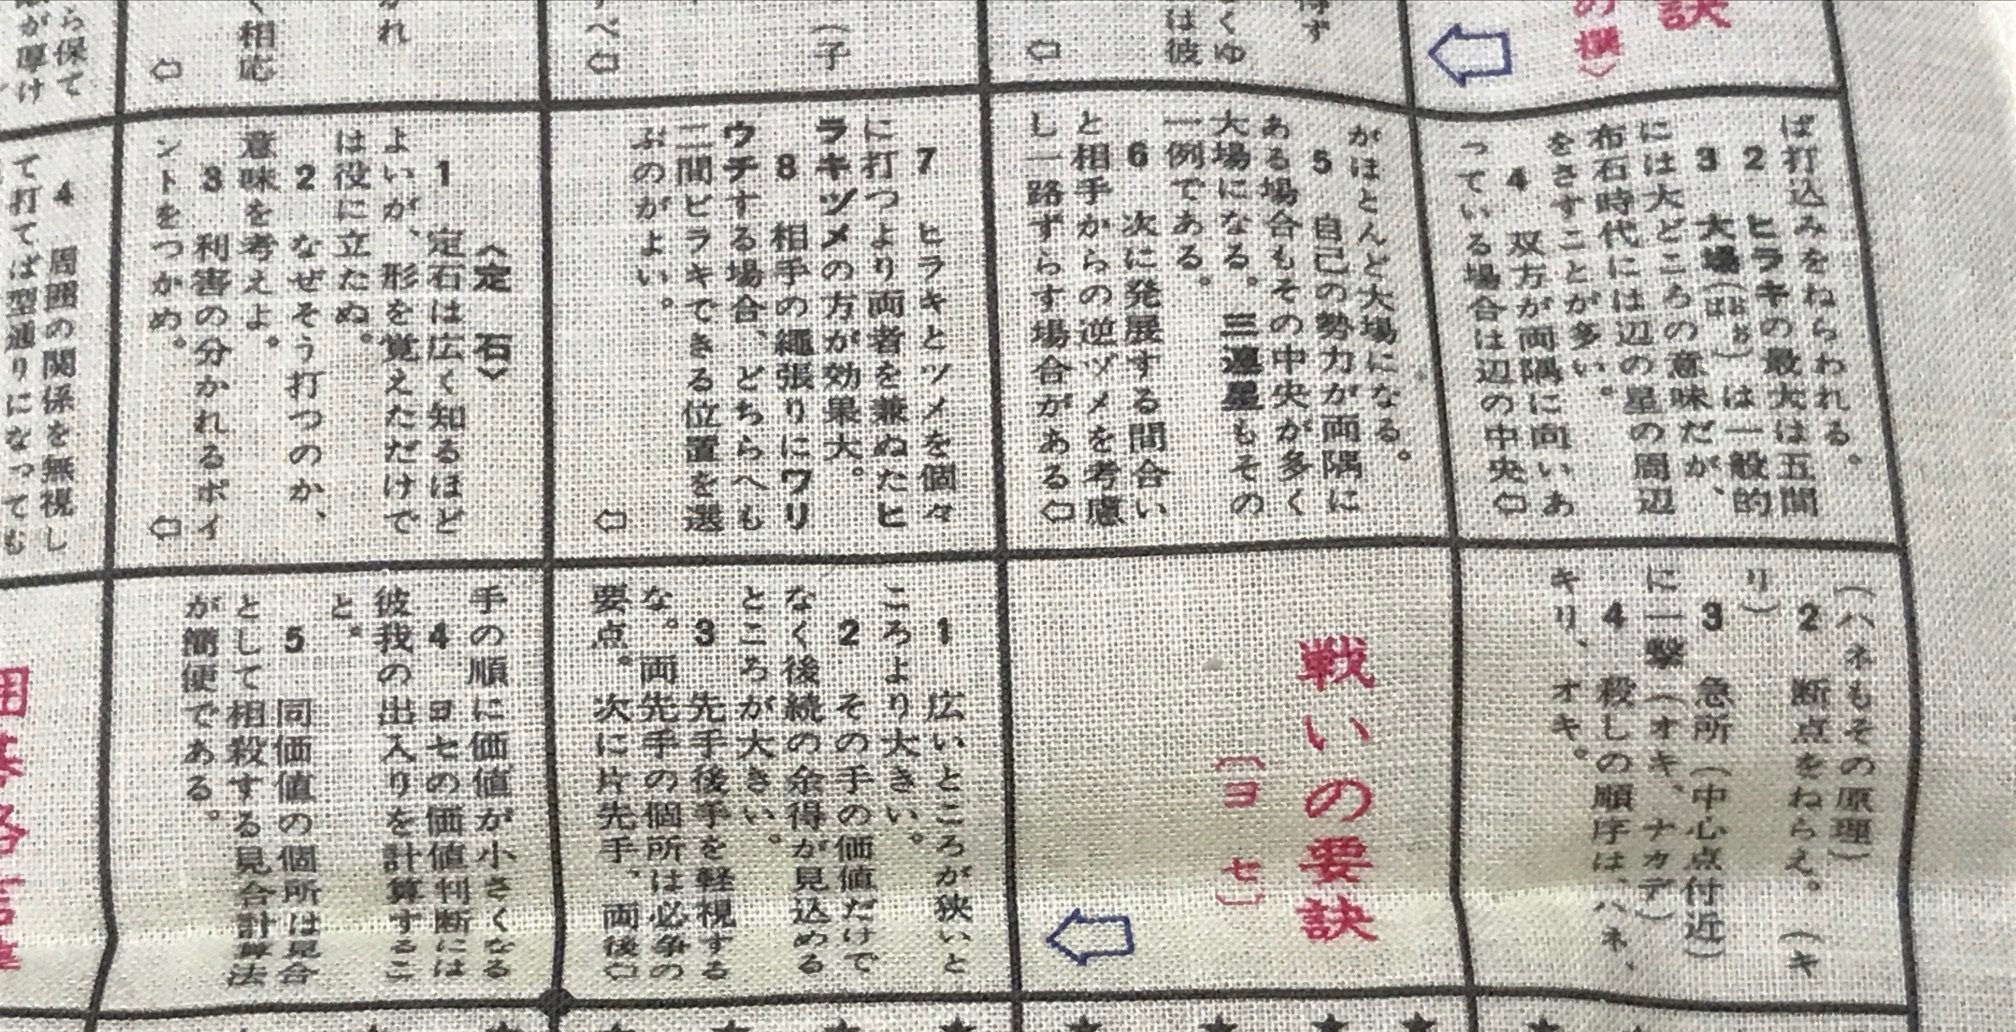 訣
の撰〉
得す
くゆ
は彼
（子
すべ
かれ
、相応
ら保て
が厚け
ば打込みをねらわれる。
2 ヒラキの最大は五間
3 大場（おおば）は一般的
には大どころの意味だが、
布石時代には辺の星の周辺
をさすことが多い。
4 双方が両隅に向いあ
っている場合は辺の中央
がほとんど大場になる。
5 自己の勢力が両隅に
ある場合もその中央が多く
大場になる。三連星もその
一例である。
6 次に発展する間合い
と相手からの逆ヅメを考慮
し一路ずらす場合がある
7 ヒラキとツメを個々
に打つより両者を兼ぬたヒ
ラキヅメの方が効果大。
8 相手の縄張りにワリ
ウチする場合、どちらへも
二間ビラキできる位置を選
ぶのがよい。
〈定 石〉
1 定石は広く知るほど
よいが、形を覚えただけで
は役に立たぬ。
2 なぜそう打つのか、
意味を考えよ。
3 利害の分かれるポイ
ントをつかめ。
4 周囲の関係を無視し
て打てば型通りになっても
（ハネもその原理）
2 断点をねらえ。（キ
リ）
3 急所（中心点付近）
に一撃（オキ、ナカデ）
4 殺しの順序は、ハネ、
キリ、オキ。
戦いの要訣
〔ヨ セ〕
1 広いところが狭いと
ころより大きい。
2 その手の価値だけで
なく後続の余得が見込める
ところが大きい。
3 先手後手を軽視する
な。両先手の個所は必争の
要点。次に片先手、両後
手の順に価値が小さくなる
4 ヨセの価値判断には
彼我の出入りを計算するこ
と。
5 同価値の個所は見合
として相殺する見合計算法
が簡便である。